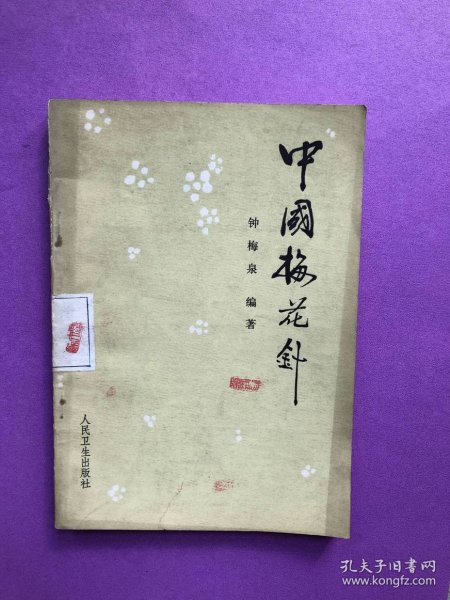 中國梅花針
钟梅泉 编著
人民卫生出版社
孔夫子旧书网
www.kongfz.com